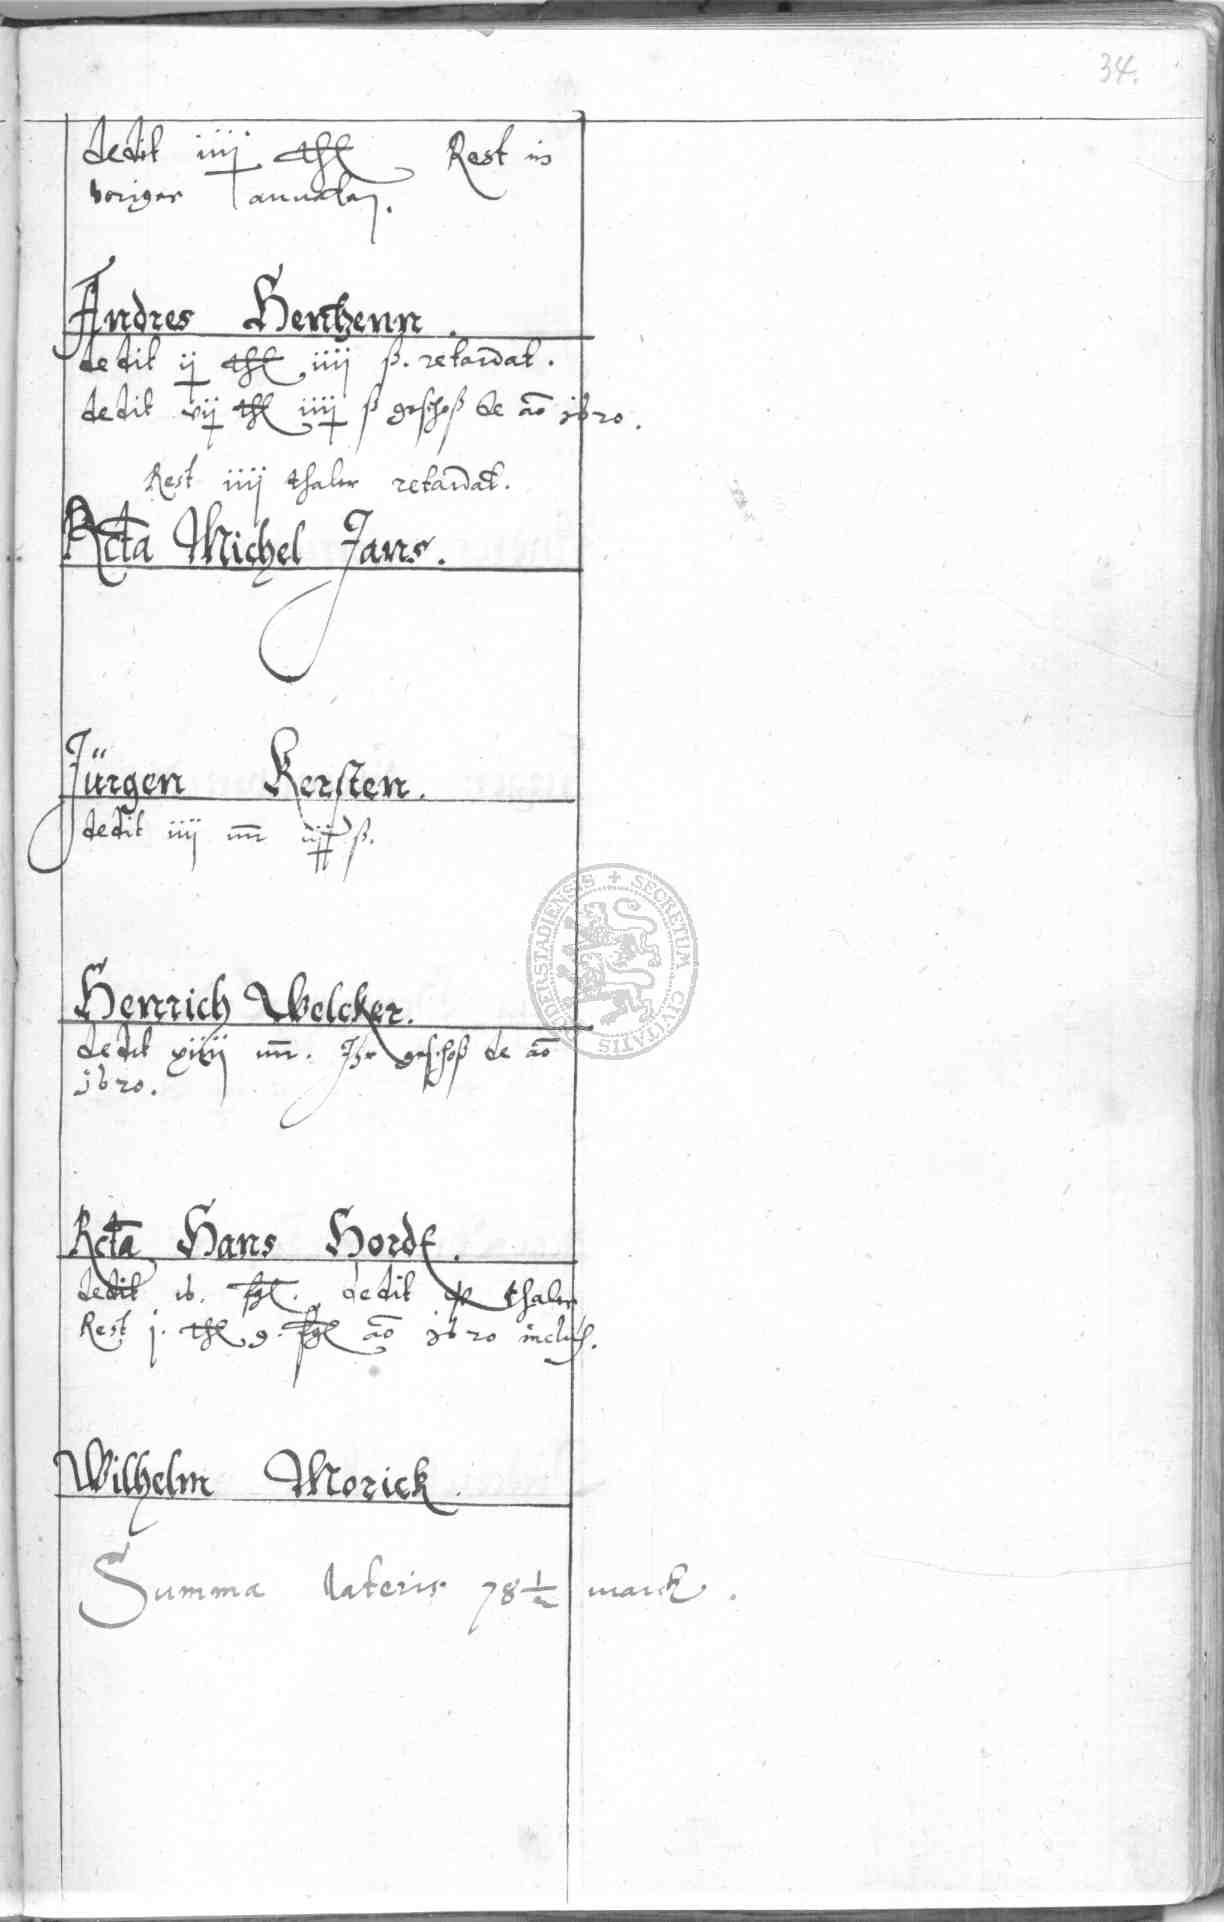 34.
dedit iiij thl Rest in
voriger annaten.
Andres Hentzenn.
dedit ij thl iiij ß. retardat.
dedit vij thl iiij ß geschoß de ao 1620.
Rest iiij thaler retardat.
Rcta Michel Jans.
Jürgen Kersten.
dedit iiij ß.
Henrich Welcker.
dedit xiiij geschoß de ao
1620.
Rcta Hans Hordt.
dedit 16. fgl. dedit thaler
Rest j. thl 9. fgl ao 1620 inclus.
Wilhelm Morick.
Summa lateris 78 1/2 marck.
SECRETUM CIVITATIS DUDERSTADIENSIS